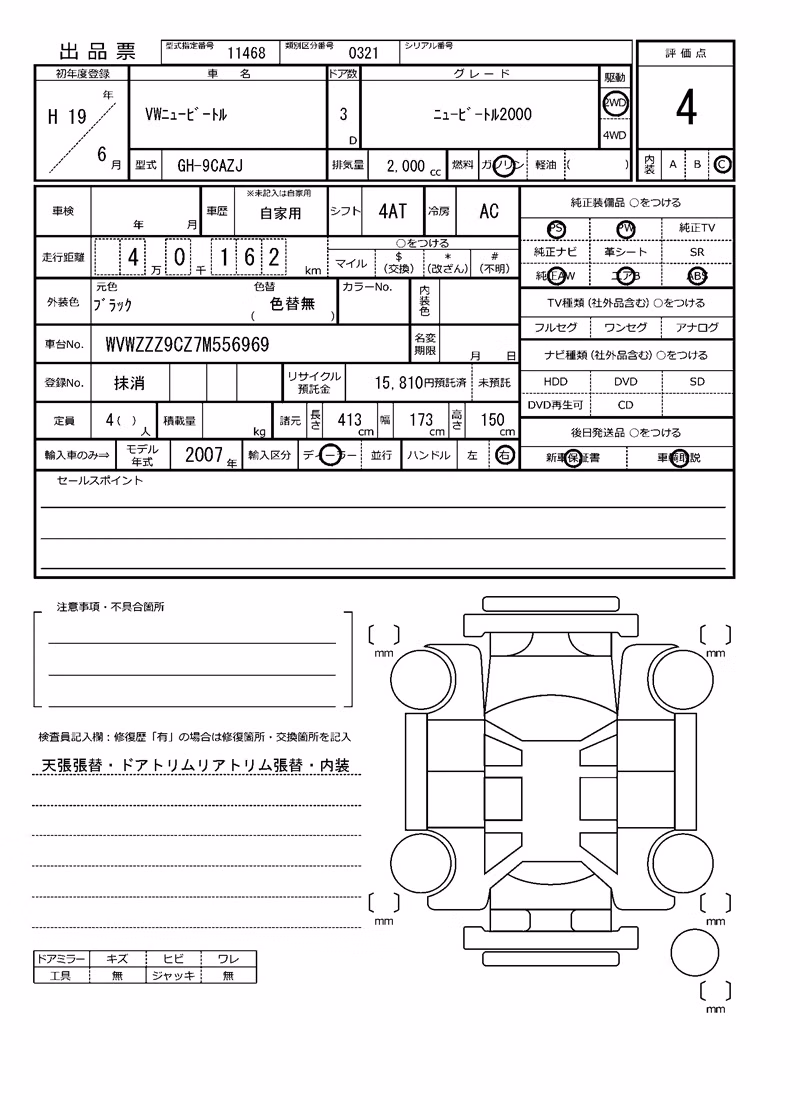 出品票 型式指定番号 11468 類別区分番号 0321 シリアル番号 評価点
初年度登録 車名 ドア数 グレード 駆動
H 19 年 6 月 VWニュービートル 3 D ニュービートル2000 2WD 4WD 4
型式 GH-9CAZJ 排気量 2,000 cc 燃料 ガソリン 軽油 ( ) 内装 A B C
車検 年 月 車歴 ※未記入は自家用 自家用 シフト 4AT 冷房 AC
走行距離 4 万 0 千 1 6 2 km
○をつける
マイル $ (交換) * (改ざん) # (不明)
外装色 元色 ブラック 色替 ( 色替無 ) カラーNo. 内装色
車台No. WVWZZZ9CZ7M556969 名変期限 月 日
登録No. 抹消 リサイクル預託金 15,810円預託済 未預託
定員 4 ( ) 人 積載量 kg 諸元 長さ 413 cm 幅 173 cm 高さ 150 cm
輸入車のみ⇒ モデル年式 2007 年 輸入区分 ディーラー 並行 ハンドル 左 右
純正装備品 ○をつける
PS PW 純正TV
純正ナビ 革シート SR
純正AW エアB ABS
TV種類 (社外品含む) ○をつける
フルセグ ワンセグ アナログ
ナビ種類 (社外品含む) ○をつける
HDD DVD SD
DVD再生可 CD
後日発送品 ○をつける
新車保証書 車輌取説
セールスポイント
注意事項・不具合箇所
検査員記入欄：修復歴「有」の場合は修復箇所・交換箇所を記入
天張張替・ドアトリムリアトリム張替・内装
ドアミラー キズ ヒビ ワレ
工具 無 ジャッキ 無
mm
mm
mm
mm
mm